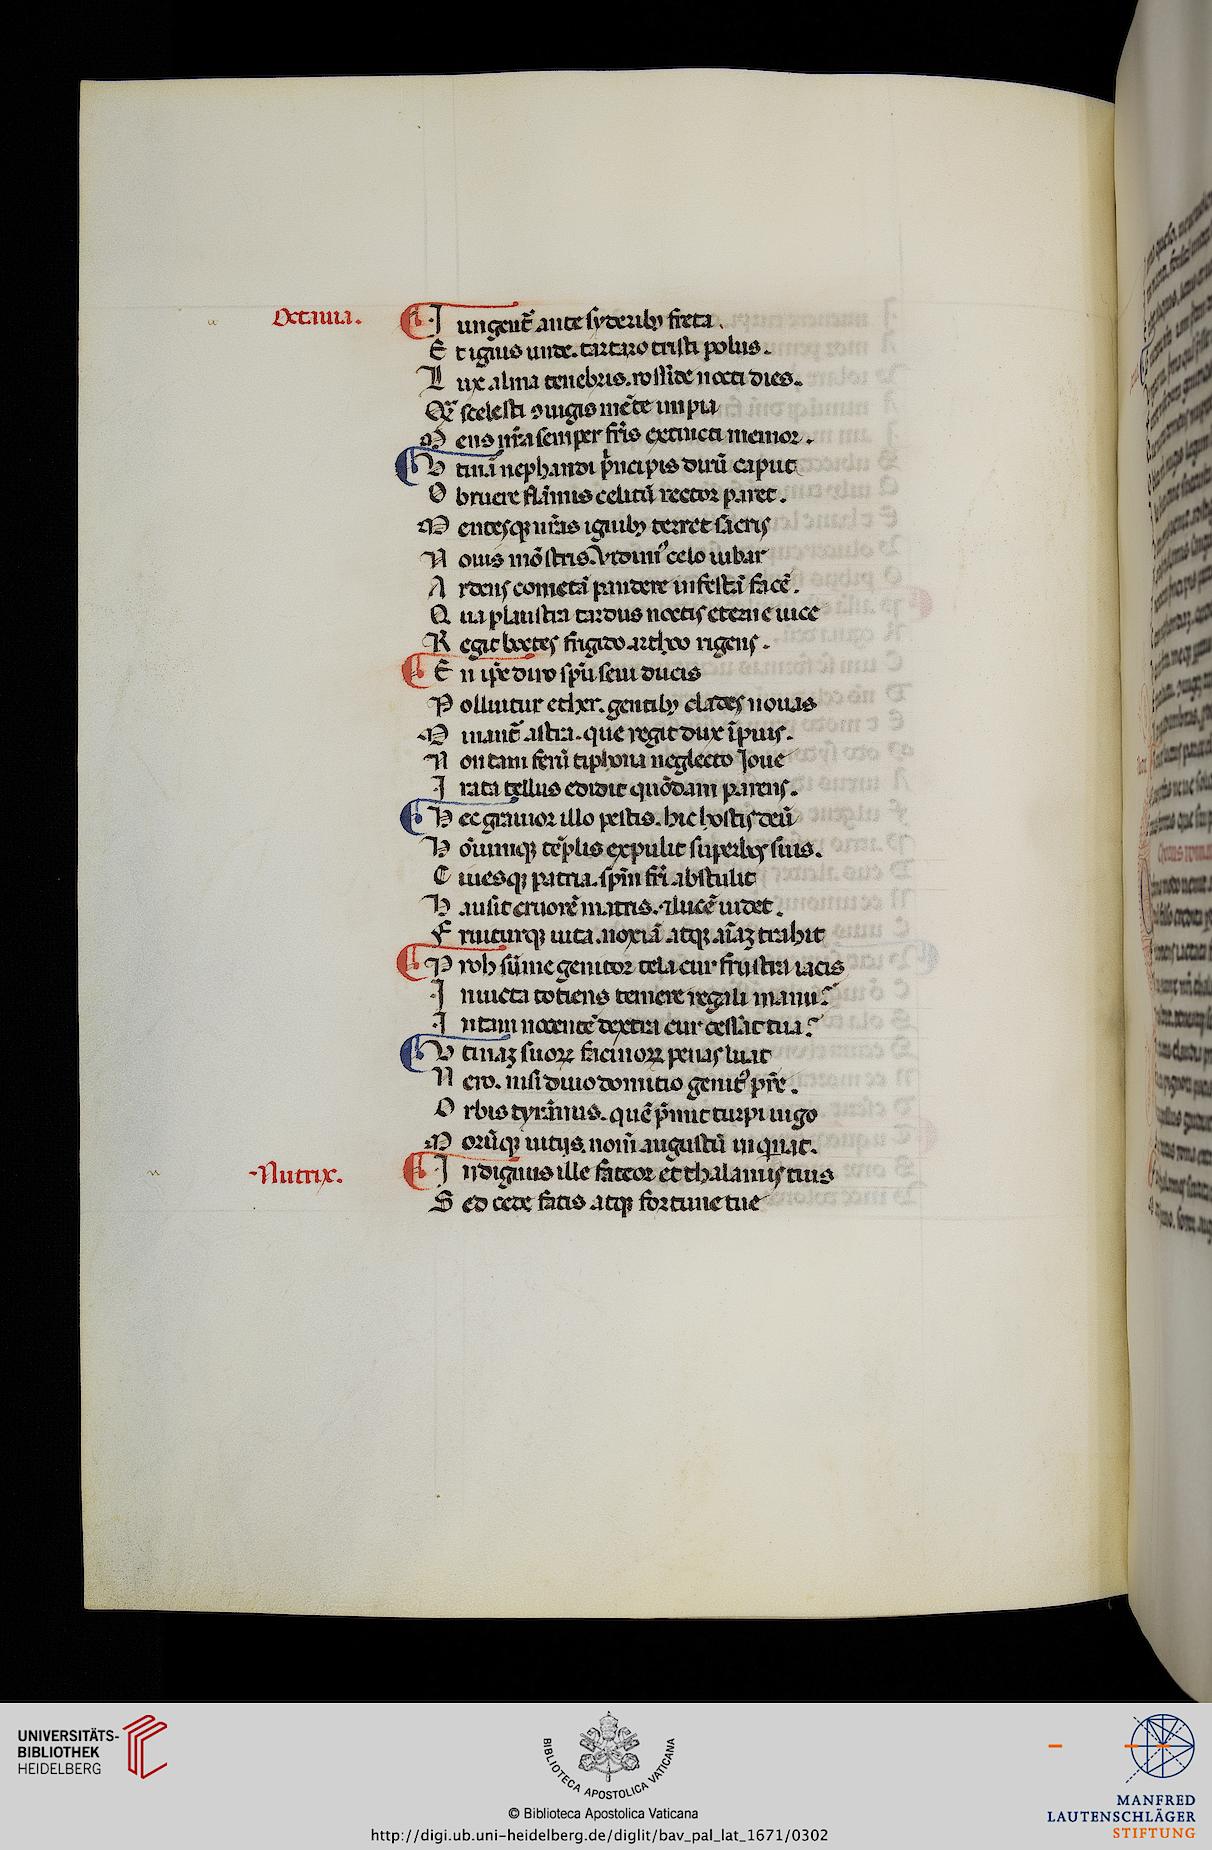 Octauia.
I ungent̄ ante syderibꝫ freta.
E t ignis unde. tartaro tristi polus.
L ux alma tenebris. rosside nocti dies.
Q̄ scelesti ꝯiugis mēte impia
M ens nr̄a semper fr̄is extincti memor.
U tinā nephandi pͥncipis dirū caput
O bruere flāmis celitū rector paret.
M entesqꝫ nr̄as ignibꝫ terret sacris
N ouis mōstris. Vidimꝰ celo iubar
A rdens cometā pandere infestā facē.
Q ua plaustra tardus noctis eterne uice
R egit boetes frigido arthoo rigens.
E n ip̄e diro sp̄u seui ducis
P olluitur ether. gentibꝫ clades nouas
M inant̄ astra. que regit dux īpius.
N on tam ferū tiphona neglecto Joue
I rata tellus edidit quōdam parens.
H ec grauior illo pestis. hic hostis deū
H oīumqꝫ tēplis expulit superbos suis.
C iuesqꝫ patria. spm̄ fr̄i abstulit
H ausit cruorē matris. ⁊ lucē uidet.
F ruiturqꝫ uita. noxiā atqꝫ aīaꝫ trahit
P roh sūme genitor tela cur frustra iacis
I nuicta totiens temere regali manu?
I n tam nocentē dextra cur cessat tua?
U tinaꝫ suoꝝ facinoꝝ penas luat
N ero. nisi diuo domitio genitꝰ pr̄e.
O rbis tyrānus. quē pͥmit turpi iugo
M orūqꝫ uitijs nom̄ augustū inqͥnat.
Nutrix.
I ndignus ille fateor et thalamis tuis
S ed cede fatis atqꝫ fortune tue
UNIVERSITÄTS-
BIBLIOTHEK
HEIDELBERG
BIBLIOTECA APOSTOLICA VATICANA
© Biblioteca Apostolica Vaticana
http://digi.ub.uni-heidelberg.de/diglit/bav_pal_lat_1671/0302
MANFRED
LAUTENSCHLÄGER
STIFTUNG